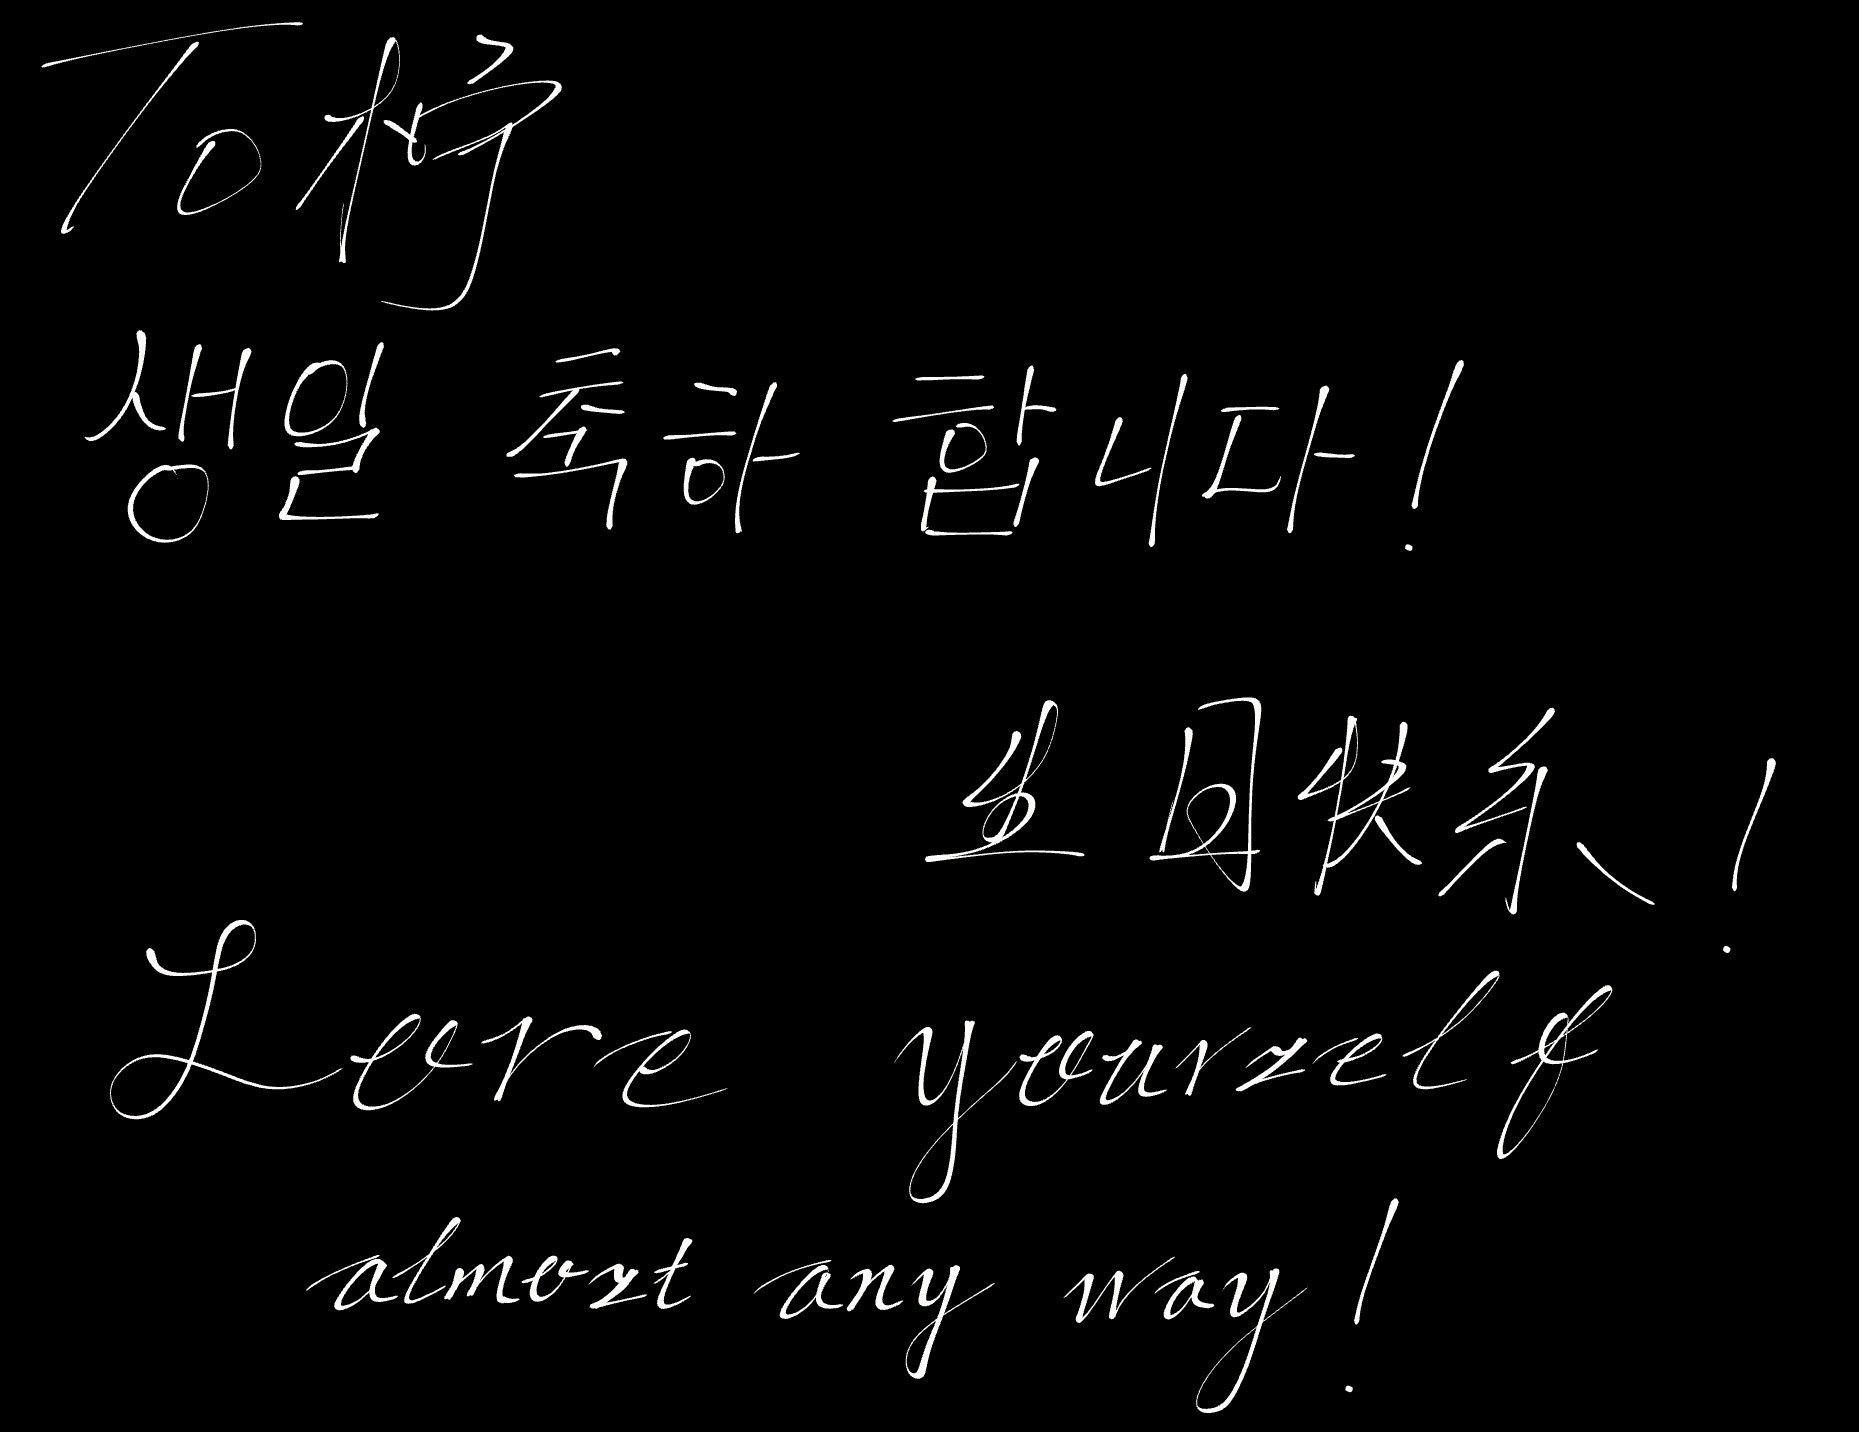 To 柠
생일 축하 합니다!
生日快乐!
Love yourself
almost any way!